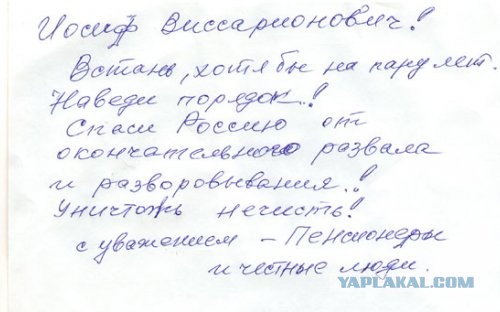 Иосиф Виссарионович!
Встань, хотя бы на пару лет.
Наведи порядок..!
Спаси Россию от
окончательного развала
и разворовывания..!
Уничтожь нечисть!
с уважением – Пенсионеры
и честные люди.
YAPLAKAL.COM